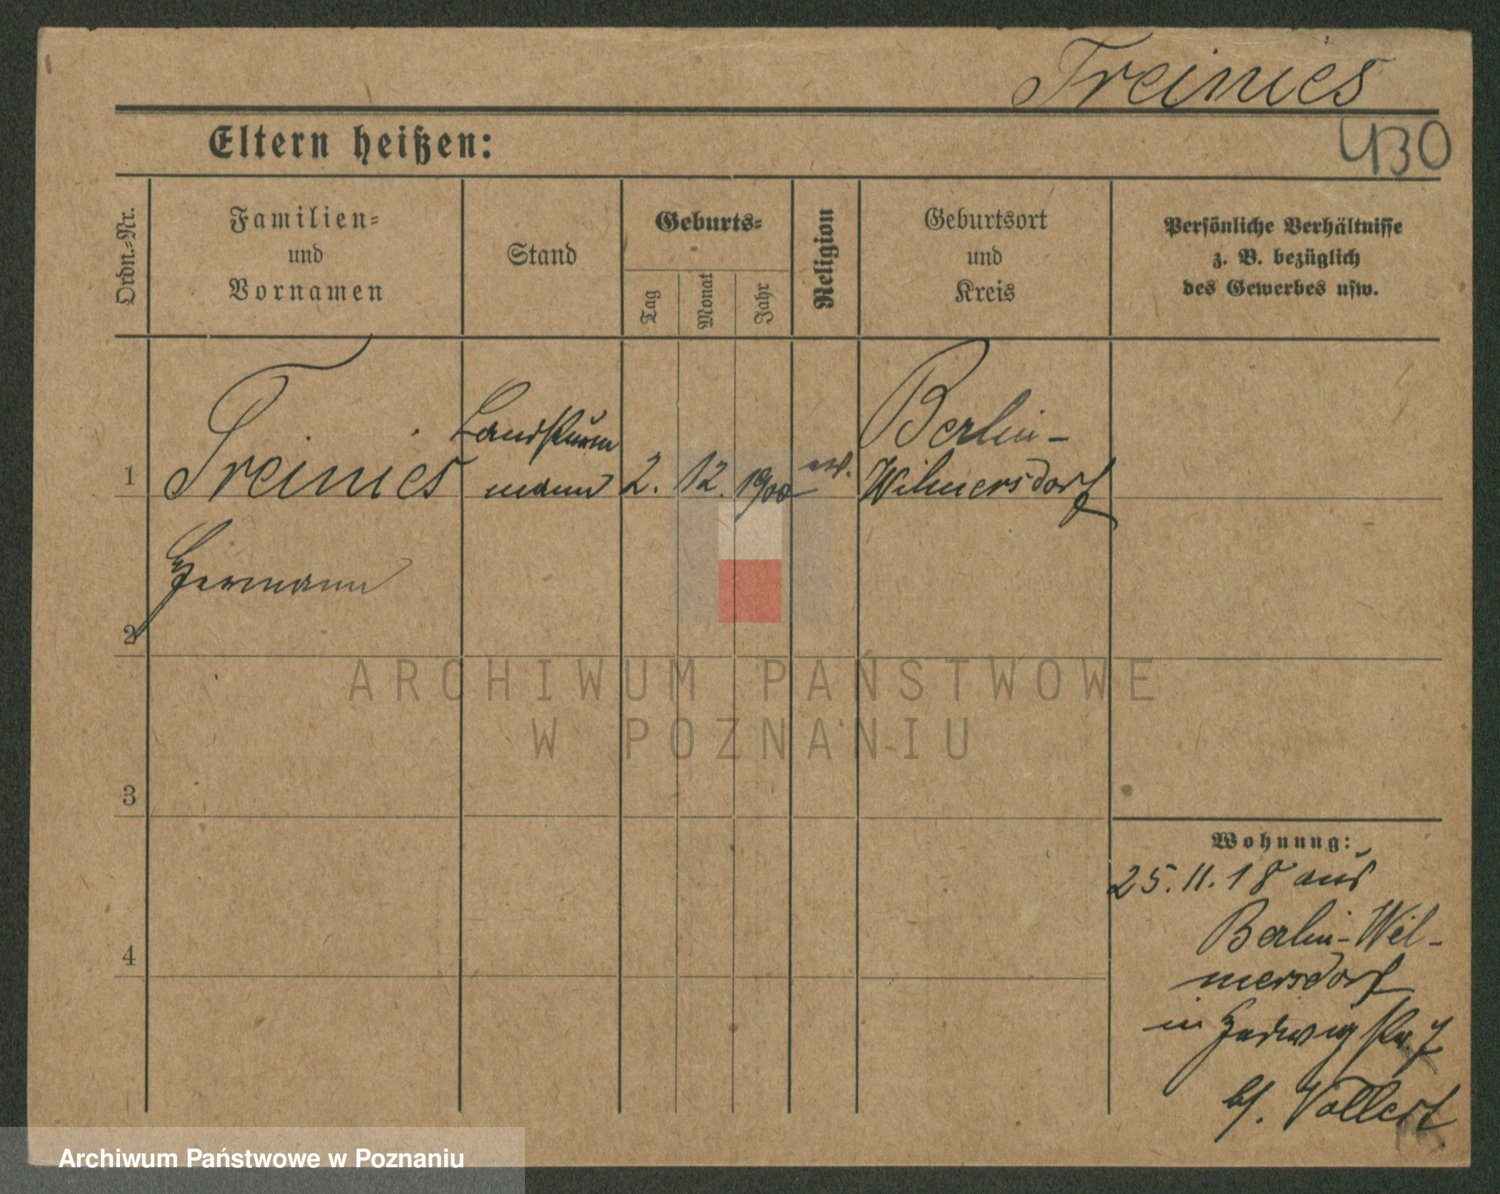 Treinies
430
Eltern heißen:
Ordn.-Nr.
Familien-
und
Vornamen
Stand
Geburts-
Tag
Monat
Jahr
Religion
Geburtsort
und
Kreis
Persönliche Verhältnisse
z. B. bezüglich
des Gewerbes usw.
1
Treinies
Landsturm
mann
2. 12. 1900
ev.
Berlin-
Wilmersdorf
Hermann
2
3
4
Wohnung:
25.11.18 aus
Berlin-Wil-
mersdorf
in Hedwigstr. 7
b/. Vollert
ARCHIWUM PAŃSTWOWE
W POZNANIU
Archiwum Państwowe w Poznaniu